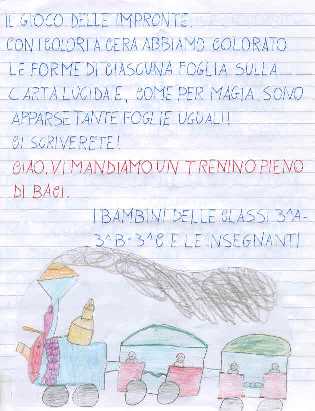 IL GIOCO DELLE IMPRONTE.
CON I COLORI A CERA ABBIAMO COLORATO
LE FORME DI CIASCUNA FOGLIA SULLA
CARTA LUCIDA E, COME PER MAGIA, SONO
APPARSE TANTE FOGLIE UGUALI!
CI SCRIVERETE!
CIAO, VI MANDIAMO UN TRENINO PIENO
DI BACI.
I BAMBINI DELLE CLASSI 3^A-
3^B-3^C E LE INSEGNANTI